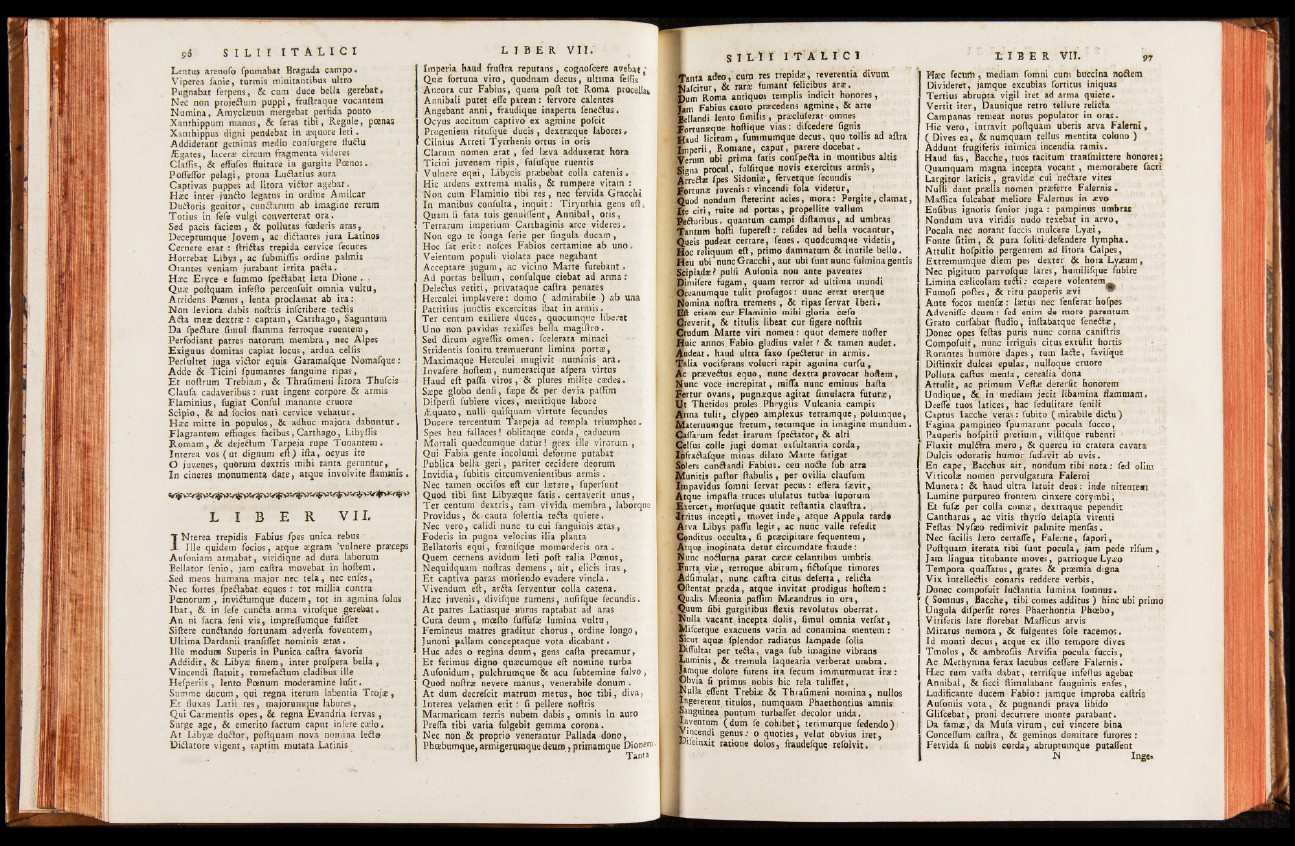 96 SILII ITALICI
Lentus arenoso spumabat Bragada campo.
Viperea sanie, turmis minitantibus ultro
Pugnabat serpens, & cum duce bella gerebat.
Nec non projectum puppi, frustraque vocantem
Numina, Amyclæum mergebat perfida ponto
Xanthippum manus, & seras tibi, Regule, pœnas
Xanthippus digni pendebat in æquore leti.
Addiderant geminas medio consurgere fluctu
Ægates, laceræ circum fragmenta videres
Classis, & effusos fluitare in gurgite Pœnos.
Possessor pelagi, prona Luctatius aura
Captivas puppes ad litora victor agebat.
Hæc inter juncto legatus in ordine Amilcar
Ductoris genitor, cunctarum ab imagine rerum
Totius in sese vulgi converterat ora.
Sed pacis faciem, & pollutas fœderis aras,
Deceptumque Jovem, ac dictantes jura Latinos
Cernere erat: strictas trepida cervice secures
Horrebat Libys, ac submissis ordine palmis
Orantes veniam jurabant irrita pacta.
Hæc Eryce e summo spectabat læta Dione.
Quæ postquam infesto percensuit omnia vultu,
Arridens Pœnus, lenta proclamat ab ira:
Non leviora dabis nostris inscribere tectis
Acta meæ dextræ: captam, Carthago, Saguntum
Da spectare simul flamma ferroque ruentem,
Perfodiant patres natorum membra, nec Alpes
Exiguus domitas capiat locus, ardua celsis
Persultet juga victor equis Garamasque Nomasque:
Adde & Ticini spumantes sanguine ripas,
Et nostrum Trebiam, & Thrasimeni litora Thuscis
Clausa cadaveribus: ruat ingens corpore & armis
Flaminius, fugiat Consul manante cruore
Scipio, & ad socios nati cervice vehatur.
Hæc mitte in populos, & adhuc majora dabuntur.
Flagrantem effinges facibus, Carthago, Libyssis
Romam, & dejectum Tarpeja rupe Tonantem.
Interea vos (ut dignum est) ista, ocyus ite
O juvenes, quorum dextris mihi tanta geruntur,
In cineres monumenta date, atque involvite flammis.
LIBER VII.
INterea trepidis Fabius spes unica rebus
Ille quidem socios, atque ægram vulnere præceps
Ausoniam armabat, viridique ad dura laborum
Bellator senio, jam castra movebat in hostem.
Sed mens humana major nec tela, nec enses,
Nec fortes spectabat equos: tot millia contra
Pœnorum, invictumque ducem, tot in agmina solus
Ibat, & in sese cuncta arma virosque gerebat.
An ni sacra seni vis, impressumque fuisset
Sistere cunctando fortunam adversa foventem,
Ultima Dardanii transisset nominis ætas.
Ille modum Superis in Punica castra favoris
Addidit, & Libyæ finem, inter prospera bella,
Vincendi statuit, tumefactum cladibus ille
Hesperiis, lento Pœnum moderamine lusit.
Summe ducum, qui regna iterum labentia Trojæ,
Et fluxas Latii res, majorumque labores,
Qui Carmentis opes, & regna Evandria servas,
Surge age, & emerito sacrum caput insere cælo.
At Libyæ ductor, postquam nova nomina lecto
Dictatore vigent, raptim mutata Latinis
LIBER VII.
Imperia haud frustra reputans, cognoscere avebat,
Quæ fortuna viro, quodnam decus, ultima fessis
Ancora cur Fabius, quem post tot Roma procellas
Annibali putet esse parem: fervore calentes
Angebant anni, fraudique inaperta senectus.
Ocyus accitum captivo ex agmine poscit
Progeniem ritusque ducis, dextræque labores.
Cilnius Arreti Tyrrhenis ortus in oris
Clarum nomen erat, sed læva adduxerat hora
Ticini juvenem ripis, fususque ruentis
Vulnere equi, Libycis præbebat colla catenis.
Hic ardens extrema malis, & rumpere vitam:
Non cum Flaminio tibi res, nec fervida Gracchi
In manibus consulta, inquit: Tirynthia gens est,
Quam si fata tuis genuissent, Annibal, oris,
Terrarum imperium Carthaginis arce videres.
Non ego te longa serie per singula ducam,
Hoc sat erit: nosces Fabios certamine ab uno.
Veientum populi violata pace negabant
Acceptare jugum, ac vicino Marte furebant.
Ad portas bellum, consulque ciebat ad arma:
Delectus vetiti, privataque castra penates
Herculei implevere: domo ( admirabile ) ab una
Patritius junctis excercitus ibat in armis.
Ter centum exiliere duces, quocumque liberet
Uno non pavidus rexisses bella magistro.
Sed dirum egressis omen. scelerata minaci
Stridentis sonitu tremuerunt limina portæ,
Maximaque Herculei mugivit numinis ara.
Invasere hostem, numerarique aspera virtus
Haud est passa viros, & plures milite cædes.
Sæpe globo densi, sæpe & per devia passim
Dispersi subiere vices, meritique labore
Æquato, nulli quisquam virtute secundus
Ducere tercentum Tarpeja ad templa triumphos.
Spes heu fallaces! oblitaque corda, caducum
Mortali quodcumque datur! grex ille virorum,
Qui Fabia gente incolumi deforme putabat
Publica bella geri, pariter cecidere deorum
Invidia, subitis circumvenientibus armis.
Nec tamen occisos est cur lætere, supersunt
Quod tibi sint Libyæque satis. certaverit unus,
Ter centum dextris, tam vivida membra, laborque
Providus, & cauta solertia tecta quiete.
Nec vero, calidi nunc tu cui sanguinis ætas,
Foderis in pugna velocius ilia planta
Bellatoris equi, frænisque momorderis ora.
Quem cernens avidum leti post talia Pœnus,
Nequidquam nostras demens, ait, elicis iras,
Et captiva paras moriendo evadere vincla.
Vivendum est, arcta serventur colla catena.
Hæc juvenis, divisque tumens, ausisque secundis.
At patres Latiasque nurus raptabat ad aras
Cura deum, mœsto suffusæ lumina vultu,
Femineus matres graditur chorus, ordine longo,
Junoni pallam conceptaque vota dicabant.
Huc ades o regina deum, gens casta precamur,
Et ferimus digno quæcumque est nomine turba
Ausonidum, pulchrumque & acu subtemine fulvo,
Quod nostræ nevere manus, venerabile donum.
At dum decrescit matrum metus, hoc tibi, diva,
Interea velamen erit: si pellere nostris
Marmaricam terris nubem dabis, omnis in auro
Pressa tibi varia fulgebit gemma corona.
Nec non & proprio venerantur Pallada dono,
Phœbumque, armigerumque deum, primamque Dionem.
Tanta
SILII ITALICI
Tanta adeo, cum res trepidæ, reverentia divum
Nascitur, & raræ fumant felicibus aræ.
Dum Roma antiquos templis indicit honores,
Jam Fabius cauto præcedens agmine, & arte
Bellandi lento similis, præcluserat omnes
Fortunæque hostique vias: discedere signis
Haud licitum, summumque decus, quo tollis ad astra
Imperii, Romane, caput, parere docebat.
Verum ubi prima satis conspecta in montibus altis
Signa procul, fulsitque novis exercitus armis,
Arrectæ spes Sidoniæ, fervetque secundis
Fortunæ juvenis: vincendi sola videtur,
Quod nondum steterint acies, mora: Pergite, clamat,
Ite citi, ruite ad portas, propellite vallum
Pectoribus. quantum campi distamus, ad umbras
Tantum hosti superest: resides ad bella vocantur,
Queis pudeat certare, senes. quodcumque videtis,
Hoc reliquum est, primo damnatum & inutile bello.
Heu ubi nunc Gracchi, aut ubi sunt nunc fulmina gentis
Scipiadæ? pulsi Ausonia non ante paventes
Dimisere fugam, quam terror ad ultima mundi
Oceanumque tulit profugos: nunc errat uterque
Nomina nostra tremens, & ripas servat Iberi.
Est etiam cur Flaminio mihi gloria cæso
Creverit, & titulis libeat cur figere nostris
Crudum Marte viri nomen: quot demere noster
Huic annos Fabio gladius valet! & tamen audet.
Audeat. haud ultra faxo spectetur in armis.
Talia vociferans volucri rapit agmina cursu,
Ac prævectus equo, nunc dextra provocat hostem,
Nunc voce increpitat, missa nunc eminus hasta
Fertur ovans, pugnæque agitat simulacra futuræ,
Ut Thetidos proles Phrygiis Vulcania campis
Arma tulit, clypeo amplexus terramque, polumque,
Maternumque fretum, totumque in imagine mundum.
Cassarum sedet irarum spectator, & alti
Celsus colle jugi domat exsultantia corda,
Infractasque minas dilato Marte fatigat
Solers cunctandi Fabius. ceu nocte sub atra
Munitis pastor stabulis, per ovilia clausum
Impavidus somni servat pecus: effera sævit,
Atque impasta truces ululatus turba luporum
Exercet, morsuque quatit restantia claustra.
Irritus incepti, movet inde, atque Appula tardo
Arva Libys passu legit, ac nunc valle resedit
Conditus occulta, si præcipitare sequentem,
Atque inopinata detur circumdare fraude:
Nunc nocturna parat cæcæ celantibus umbris
Furta viæ, retroque abitum, fictosque timores
Adsimulat, nunc castra citus deserta, relicta
Ostentat præda, atque invitat prodigus hostem:
Qualis Mæonia passim Mæandrus in ora,
Quum sibi gurgitibus flexis revolutus oberrat.
Nulla vacant incepta dolis, simul omnia versat,
Miscetque exacuens varia ad conamina mentem:
Sicut aquæ splendor radiatus lampade solis
Dissultat per tecta, vaga sub imagine vibrans
Luminis, & tremula laquearia verberat umbra.
Jamque dolore furens ita secum immurmurat iræ:
Obvia si primus nobis hic tela tulisset,
Nulla essent Trebiæ & Thrasimeni nomina, nullos
Ingererent titulos, numquam Phaethontius amnis
Sanguinea pontum turbasset decolor unda.
Inventum (dum se cohibet; terimurque sedendo)
Vincendi genus: o quoties, velut obvius iret,
Discinxit ratione dolos, fraudesque resolvit.
LIBER VII. 97
Hæc secum, mediam somni cum buccina noctem
Divideret, jamque excubias sortitus iniquas
Tertius abrupta vigil iret ad arma quiete.
Vertit iter, Daunique retro tellure relicta
Campanas remeat notus populator in oras.
Hic vero, intravit postquam uberis arva Falerni,
( Dives ea, & numquam tellus mentita colono )
Addunt frugiferis inimica incendia ramis.
Haud fas, Bacche, tuos tacitum transmittere honores;
Quamquam magna incepta vocant, memorabere sacri
Largitor laticis, gravidæ cui nectare vites
Nulli dant prælis nomen præferre Falernis.
Massica sulcabat meliore Falernus in ævo
Ensibus ignotis senior juga: pampinus umbras
Nondum uva viridis nudo texebat in arvo,
Pocula nec norant succis mulcere Lyæi,
Fonte sitim, & pura soliti defendere lympha.
Attulit hospitio pergentem ad litora Calpes,
Extremumque diem pes dexter & hora Lyæum,
Nec pigitum parvosque lares, humilisque subire
Limina cælicolam tecti: cœpere volentem
Fumosi postes, & ritu pauperis ævi
Ante focos mensæ: lætus nec senserat hospes
Advenisse deum: sed enim de more parentum
Grato cursabat studio, instabatque senectæ,
Donec opes festas puris nunc corna canistris
Composuit, nunc irriguis citus extulit hortis
Rorantes humore dapes, tum lacte, favisque
Distinxit dulces epulas, nulloque cruore
Polluta castus mensa, cerealia dona
Attulit, ac primum Vestæ detersit honorem
Undique, & in mediam jecit libamina flammam.
Deesse tuos latices, hac sedulitate senili
Captus Iacche vetas: subito (mirabile dictu)
Fagina pampineo spumarunt pocula succo,
Pauperis hospitii pretium, vilisque rubenti
Fluxit mulctra mero, & quercu in cratera cavata
Dulcis odoratis humor sudavit ab uvis.
En cape, Bacchus ait, nondum tibi nota: sed olim
Viticolæ nomen pervulgatura Falerni
Munera: & haud ultra latuit deus: inde nitentem
Lumine purpureo frontem cinxere corymbi,
Et fusæ per colla comæ, dextraque pependit
Cantharus, ac vitis thyrso delapsa virenti
Festas Nysæo redimivit palmite mensas.
Nec facilis læto certasse, Falerne, sapori,
Postquam iterata tibi sunt pocula, jam pede risum,
Jam lingua titubante moves, patrioque Lyæo
Tempora quassatus, grates & præmia digna
Vix intellectis conaris reddere verbis,
Donec composuit luctantia lumina somnus.
( Somnus, Bacche, tibi comes additus ) hinc ubi primo
Ungula disperfit rores Phaethontia Phœbo,
Vitiferis late florebat Massicus arvis
Miratus nemora, & fulgentes sole racemos.
Id monti decus, atque ex illo tempore dives
Tmolus, & ambrosiis Arvisia pocula succis,
Ac Methymna ferax lacubus cessere Falernis.
Hæc tum vasta dabat, terrisque infestus agebat
Annibal, & sicci stimulabant sanguinis enses,
Ludificante ducem Fabio: jamque improba castris
Ausoniis vota, & pugnandi prava libido
Gliscebat, proni decurrere monte parabant.
Da famæ, da Musa virum, cui vincere bina
Concessum castra, & geminos domitare furores:
Fervida si nobis corda, abruptumque putassent
N Inge-